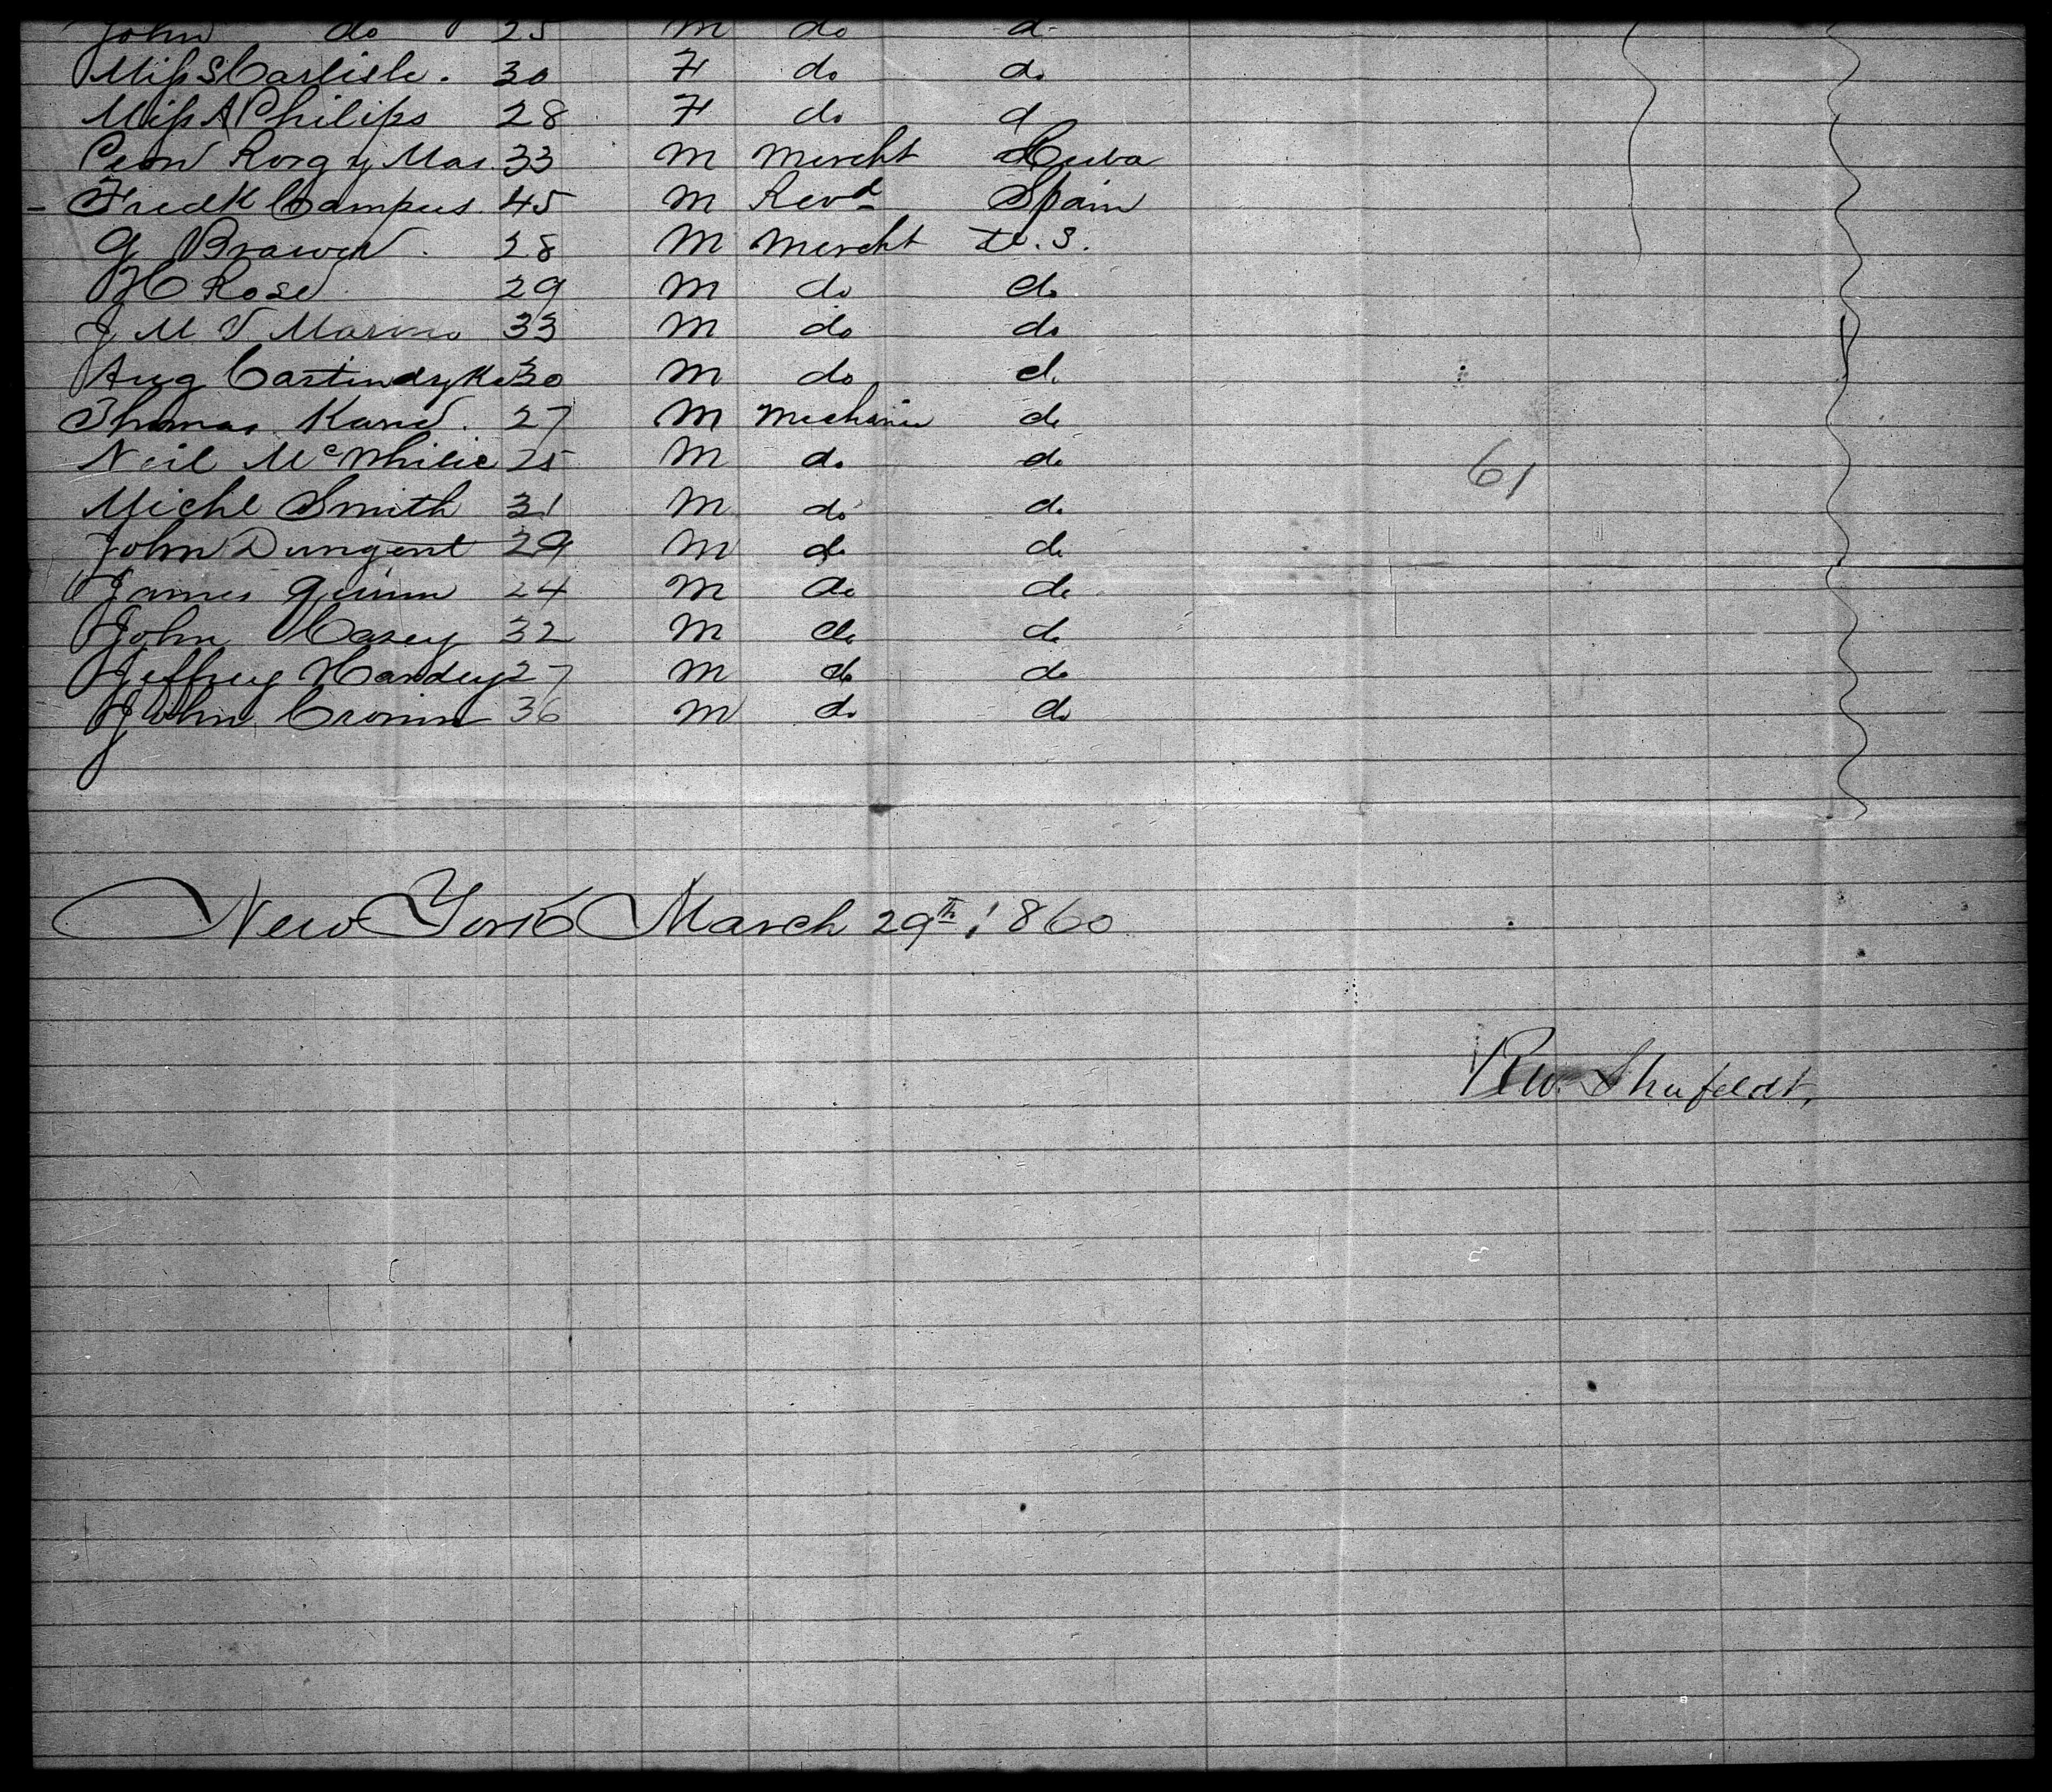 John do 25 M do do
Miss S Carlisle. 30 F do do
Miss A Philips 28 F do d
Leon Rosg y Mas. 33 M Mercht Cuba
- Fredk Campus. 45 M Revd Spain
G Brawer. 28 M Mercht U.S.
H Rose 29 M do do
J M V Marino 33 M do do
Aug Castindyke 30 M do do
Thomas Kane. 27 M Mechanic do
Neil Mc 25 M do do
Michl Smith 31 M do do
61
John Dungent 29 M do do
James Quinn 24 M do do
John Casey 32 M do do
Jeffrey Handey 27 M do do
John Cronin 36 M do do
New York March 29th 1860
R W. Shufeldt.